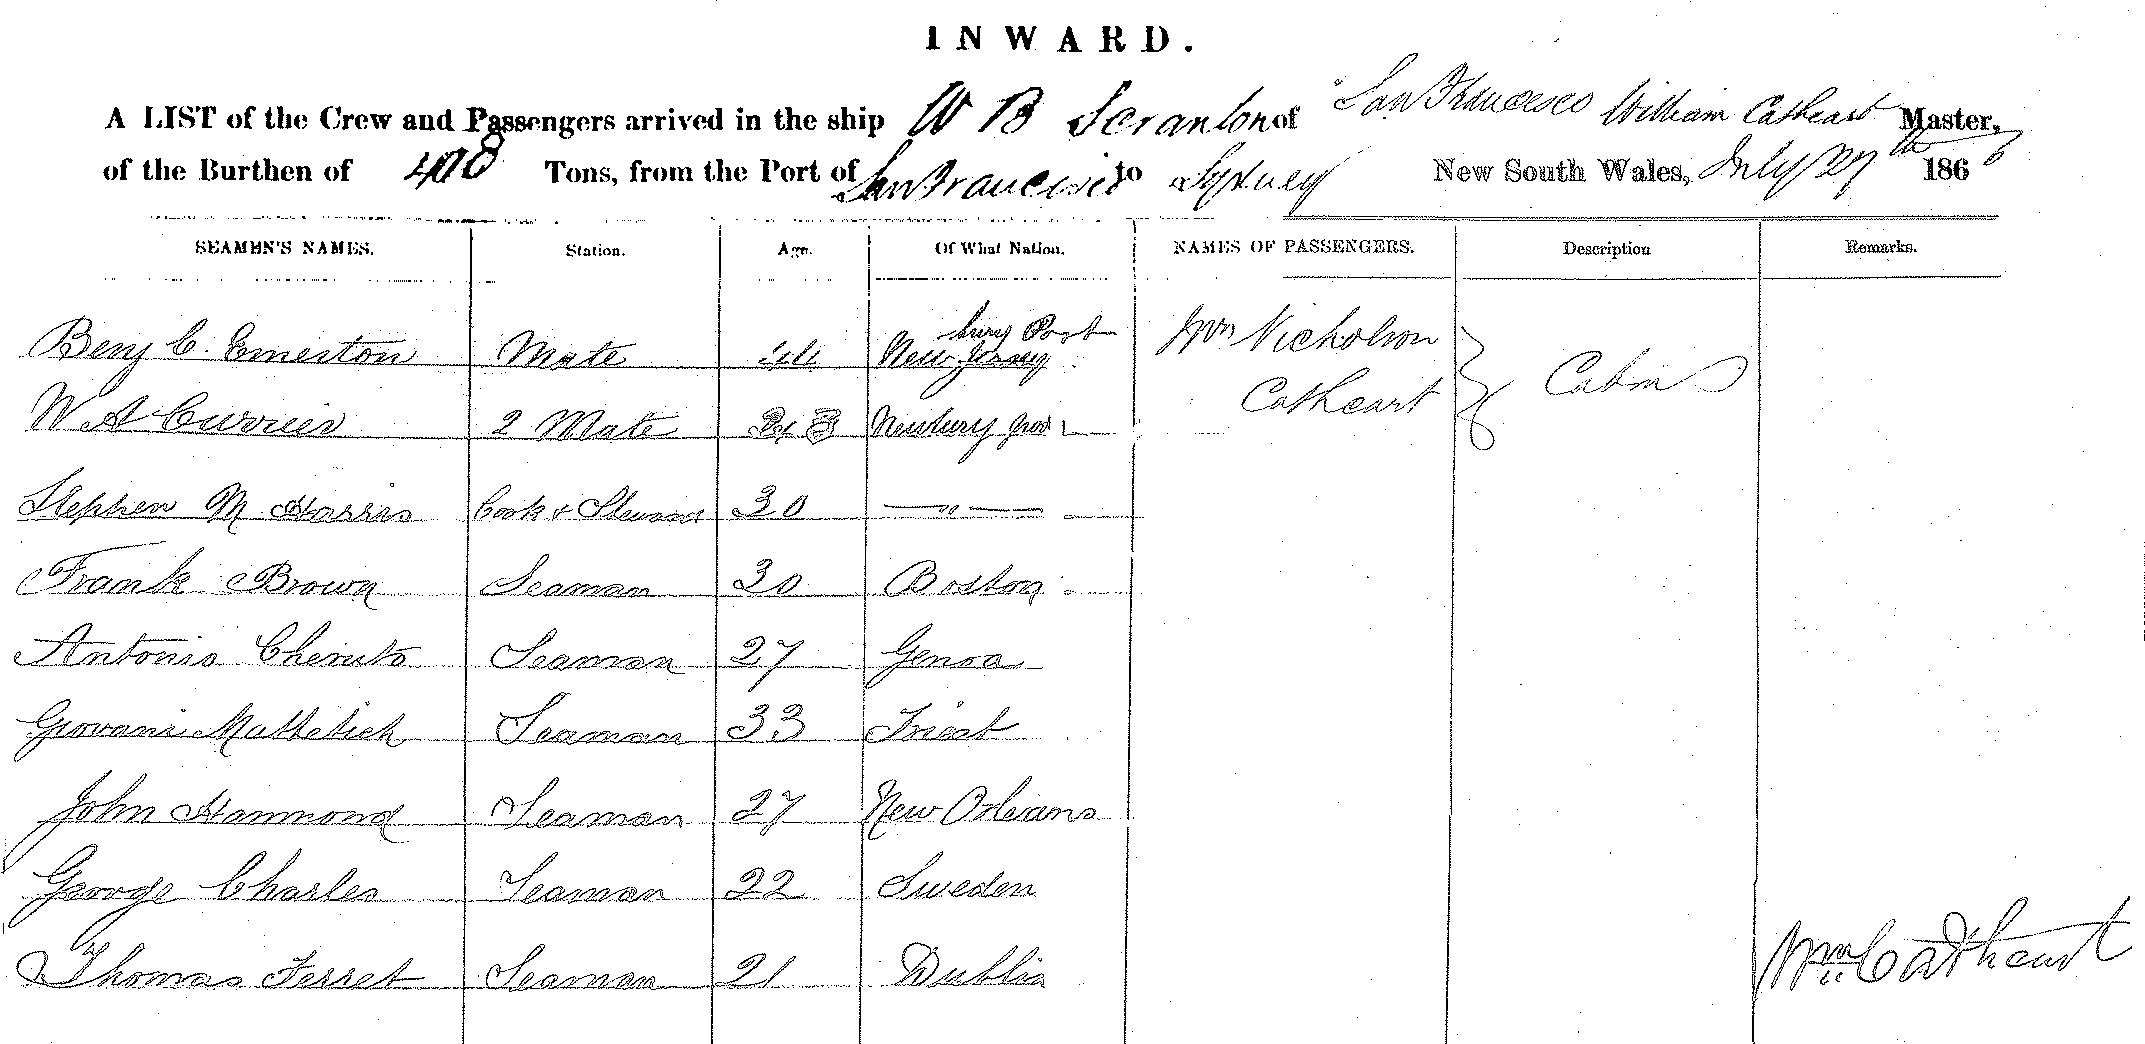 INWARD.
A LIST of the Crew and Passengers arrived in the ship W B Scranton of San Francisco William Cathcart Master,
of the Burthen of 498 Tons, from the Port of San Francisco to Sydney New South Wales, July 27th 1866
SEAMEN'S NAMES. Station. Age. Of What Nation. NAMES OF PASSENGERS. Description Remarks.
bury Port
Benj C. Emerton Mate 44 New Jersey Wm Nicholson
Cathcart Cabin
W A Currier 2 Mate Newbury port
Stephen M Harris Cook & Steward 30 — " —
Frank Brown Seaman 30 Boston
Antonio Seaman 27 Genoa
Giovani Seaman 33 Triest
John Hammond Seaman 27 New Orleans
George Charles Seaman 22 Sweden
Thomas Ferret Seaman 21 Dublin
Wm Cathcart